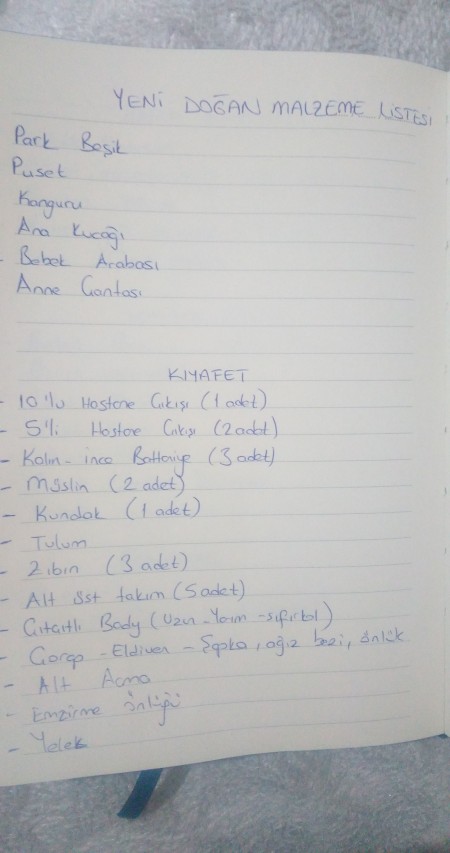 YENİ DOĞAN MALZEME LİSTESİ
Park Beşik
Puset
Kanguru
Ana Kucağı
- Bebek Arabası
Anne Çantası
KIYAFET
- 10'lu Hastane Çıkışı (1 adet)
- 5'li Hastane Çıkışı (2 adet)
- Kalın - ince Battaniye (3 adet)
- Müslin (2 adet)
- Kundak (1 adet)
- Tulum
- Zıbın (3 adet)
- Alt üst takım (5 adet)
- Çıtçıtlı Body (Uzun - Yarım - sıfırkol)
- Çorap - Eldiven - Şapka, ağız bezi, önlük
- Alt Açma
- Emzirme önlüğü
- Yelek